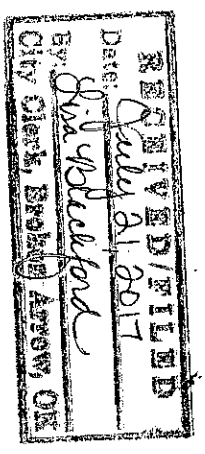 RECEIVED/FILED
Date: July 21 2017
By: Lisa Blackford
City Clerk, Broken Arrow, OK